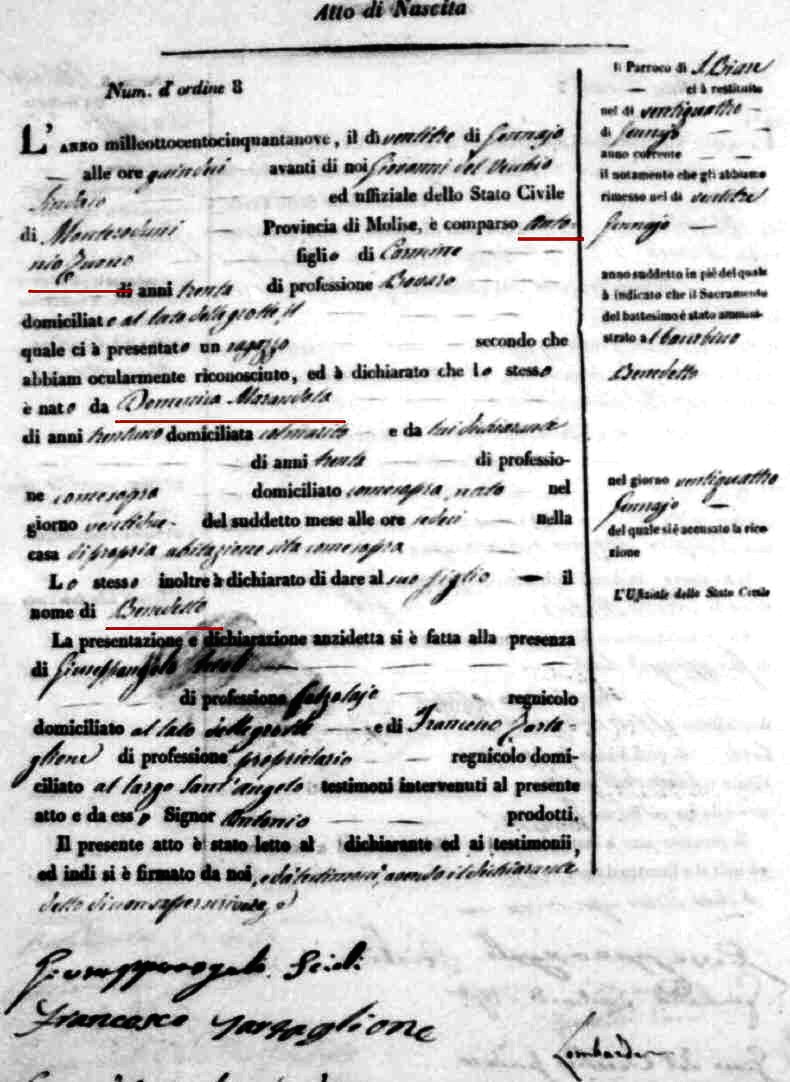 Atto di Nascita
Num. d'ordine 8
L'ANNO millottocentocinquantanove, il dì ventitre di Gennajo
alle ore quindici avanti di noi Giovanni del Vecchio
Sindaco ed uffiziale dello Stato Civile
di Monteroduni Provincia di Molise, è comparso Anto-
nio Zuono figlio di Carmine
di anni trenta di professione Bovaro
domiciliato al lato della grotte, il
quale ci à presentato un ragazzo secondo che
abbiam ocularmente riconosciuto, ed à dichiarato che lo stesso
è nato da Domenica Marandola
di anni trentuno domiciliata col marito e da lui dichiarante
di anni trenta di professio-
ne come sopra domiciliato come sopra, nato nel
giorno ventidue del suddetto mese alle ore sedici nella
casa di propria abitazione sita come sopra
Lo stesso inoltre à dichiarato di dare al suo figlio il
nome di Benedetto
La presentazione e dichiarazione anzidetta si è fatta alla presenza
di Giuseppangelo Scioli
di professione Calzolajo regnicolo
domiciliato al lato delle grotte e di Francesco Tarta
glione di professione proprietario regnicolo domi-
ciliato al largo Sant'angelo testimoni intervenuti al presente
atto e da esso Signor Antonio prodotti.
Il presente atto è stato letto al dichiarante ed ai testimonii,
ed indi si è firmato da noi, e da' testimoni, avendo il dichiarante
detto di non saper scrivere
Giuseppangelo Scioli
Francesco Tartaglione
Lombardi
Il Parroco di S. Biase
ci à restituito
nel dì ventiquattro
di Gennajo
anno corrente
il notamento che gli abbiamo
rimesso nel dì ventitre
Gennajo
anno suddetto in piè del quale
à indicato che il Sacramento
del battesimo è stato ammini-
strato al bambino
Benedetto
nel giorno ventiquattro
Gennajo
del quale si è accusato la rice-
zione
L'Uffiziale dello Stato Civile